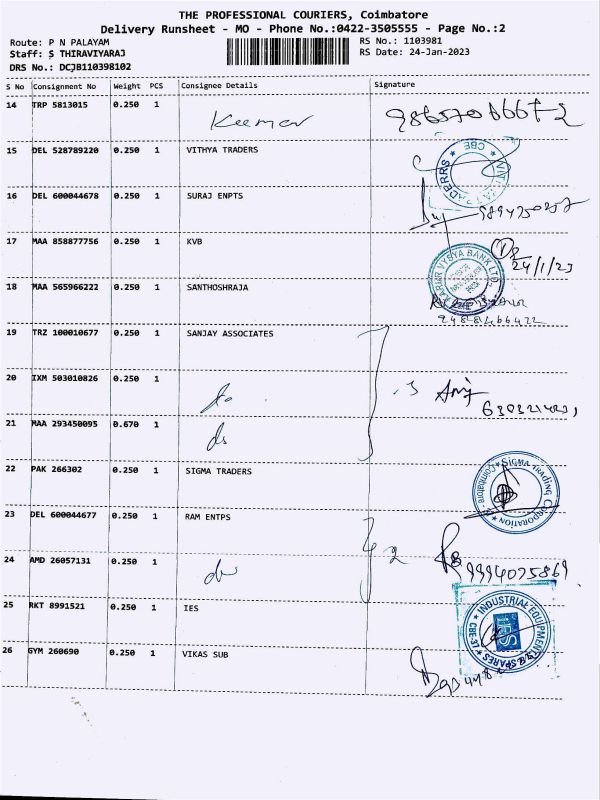 THE PROFESSIONAL COURIERS, Coimbatore
Delivery Runsheet - MO - Phone No.:0422-3505555 - Page No.:2
Route: P N PALAYAM
RS No.: 1103981
Staff: S THIRAVIYARAJ
RS Date: 24-Jan-2023
DRS No.: DCJB110398102
S No Consignment No Weight PCS Consignee Details Signature
14 TRP 5813015 0.250 1
15 DEL 528789220 0.250 1 VITHYA TRADERS
CBE
16 DEL 600044678 0.250 1 SURAJ ENPTS
17 MAA 858877756 0.250 1 KVB
KARUR VYSYA BANK LTD.
24/1/23
18 MAA 565966222 0.250 1 SANTHOSHRAJA
19 TRZ 100010677 0.250 1 SANJAY ASSOCIATES
20 IXM 503010826 0.250 1
3
21 MAA 293450095 0.670 1
do
22 PAK 266302 0.250 1 SIGMA TRADERS
SIGMA TRADING CORPORATION
Coimbatore
23 DEL 600044677 0.250 1 RAM ENTPS
2
24 AMD 26057131 0.250 1
do
9994075869
25 RKT 8991521 0.250 1 IES
INDUSTRIAL EQUIPMENT & SPARES
IES
26 GYM 260690 0.250 1 VIKAS SUB